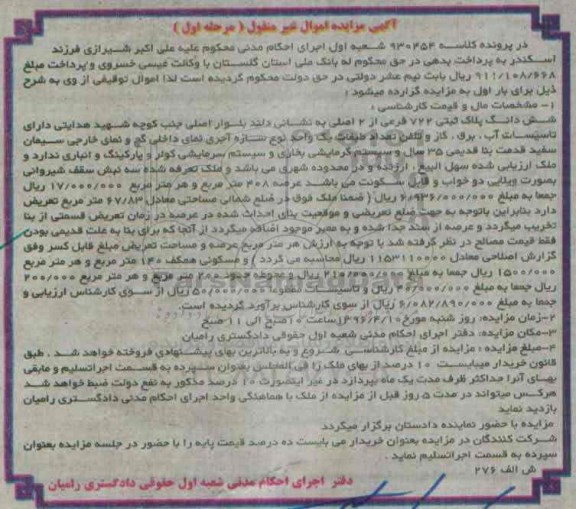 آگهی مزایده اموال غیر منقول ( مرحله اول )
در پرونده کلاسه ۹۳۰۴۵۴ شعبه اول اجرای احکام مدنی محکوم علیه علی اکبر شیرازی فرزند
اسکندر به پرداخت بدهی در حق محکوم له بانک ملی استان گلستان با وکالت عیسی خسروی و پرداخت مبلغ
۹۱۱/۱۰۸/۶۶۸ ریال بابت نیم عشر دولتی در حق دولت محکوم گردیده است لذا اموال توقیفی از وی به شرح
ذیل برای بار اول به مزایده گزارده میشود :
۱- مشخصات مال و قیمت کارشناسی :
شش دانگ پلاک ثبتی ۷۲۲ فرعی از ۲ اصلی به نشانی دلند بلوار اصلی جنب کوچه شهید هدایتی دارای
تاسیسات آب ، برق ، گاز و تلفن تعداد طبقات یک واحد نوع سازه آجری نمای داخلی گچ و نمای خارجی سیمان
سفید قدمت بنا قدیمی ۳۵ سال و سیستم گرمایشی بخاری و سیستم سرمایشی کولر و پارکینگ و انباری ندارد و
ملک ارزیابی شده سهل البیع ، ارزنده و در محدوده شهری می باشد و ملک تعرفه شده سه نبش سقف شیروانی
بصورت ویلایی دو خواب و قابل سکونت می باشد عرصه ۴۰۸ متر مربع و هر متر مربع ۱۷/۰۰۰/۰۰۰ ریال
جمعا به مبلغ ۶/۹۳۶/۰۰۰/۰۰۰ ریال ( ضمنا ملک فوق در ضلع شمالی مساحتی معادل ۶۷/۸۳ متر مربع تعریض
دارد بنابراین باتوجه به جهت ضلع تعریضی و موقعیت بنای احداث شده در عرصه در زمان تعریض قسمتی از بنا
تخریب میگردد و عرصه از سند جدا شده و به معبر موجود اضافه میگردد از آنجا که برای بنا به علت قدیمی بودن
فقط قیمت مصالح در نظر گرفته شد با توجه به ارزش هر متر مربع عرصه و مساحت تعریض مبلغ قابل کسر وفق
گزارش اصلاحی معادل ۱۱۵۳۱۱۰۰۰۰ ریال محاسبه می گردد ) و مسکونی همکف ۱۴۰ متر مربع و هر متر مربع
۱۵۰۰/۰۰۰ ریال جمعا به مبلغ ۲۱۰/۰۰۰/۰۰۰ ریال و محوطه جمعا ۲۰۰ متر مربع و هر متر مربع ۲۰۰/۰۰۰
ریال جمعا به مبلغ ۴۰/۰۰۰/۰۰۰ ریال و تاسیسات منصوبه ۵۰/۰۰۰/۰۰۰ ریال از سوی کارشناس ارزیابی و
جمعا به مبلغ ۶/۰۸۲/۸۹۰/۰۰۰ ریال از سوی کارشناس برآورد گردیده است.
۲-زمان مزایده: روز شنبه مورخ ۱۳۹۶/۴/۱۰ ساعت ۱۰ صبح الی ۱۱ صبح
۳-مکان مزایده: دفتر اجرای احکام مدنی شعبه اول حقوقی دادگستری رامیان
۴-مبلغ مزایده : مزایده از مبلغ کارشناسی شروع و به بالاترین بهای پیشنهادی فروخته خواهد شد . طبق
قانون خریدار میبایست ۱۰ درصد از بهای ملک را فی المجلس بعنوان سپرده به قسمت اجرا تسلیم و مابقی
بهای آنرا حداکثر ظرف مدت یک ماه بپردازد در غیر اینصورت ۱۰ درصد مذکور به نفع دولت ضبط خواهد شد
هرکس میتواند در مدت ۵ روز قبل از مزایده از ملک با هماهنگی واحد اجرای احکام مدنی دادگستری رامیان
بازدید نماید
مزایده با حضور نماینده دادستان برگزار میگردد
شرکت کنندگان در مزایده بعنوان خریدار می بایست ده درصد قیمت پایه را با حضور در جلسه مزایده بعنوان
سپرده به قسمت اجرا تسلیم نماید .
ش الف ۲۷۶
دفتر اجرای احکام مدنی شعبه اول حقوقی دادگستری رامیان